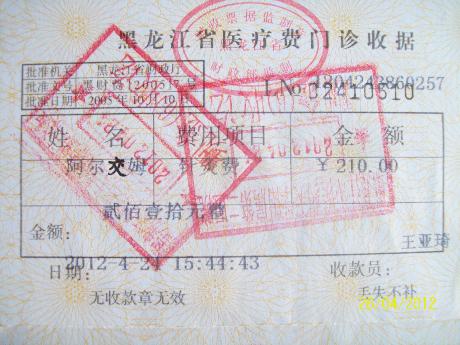 黑龙江省医疗费门诊收据
批准机关 黑龙江省财政厅
批准文号 黑财费[2005]7号
批准日期 2005年10月19日
1204243860257
LNo.02410510
姓 名 费用项目 金 额
阿尔 姆 针灸费 ¥210.00
贰佰壹拾元整
金额: 王亚琦
2012-4-24 15:44:43
日期: 收款员:
无收款章无效 丢失不补
26/04/2012